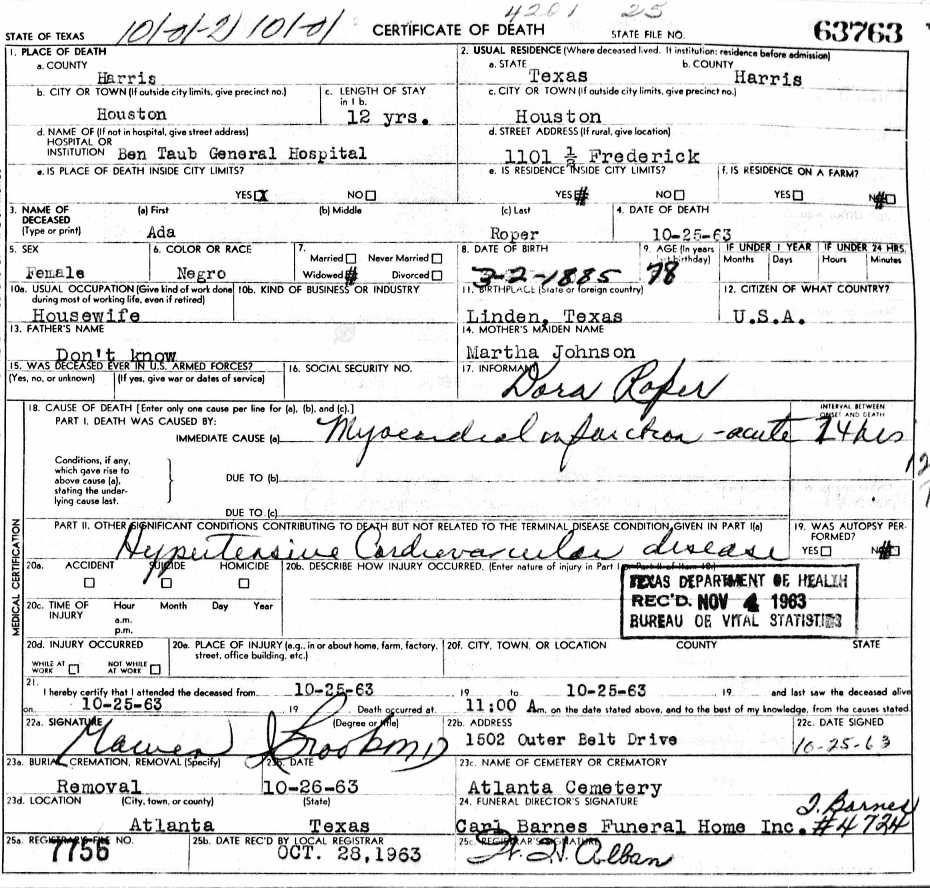 4201 25
STATE OF TEXAS 101-01-21 101-01 CERTIFICATE OF DEATH STATE FILE NO. 63763
1. PLACE OF DEATH
a. COUNTY
Harris
2. USUAL RESIDENCE (Where deceased lived. If institution: residence before admission)
a. STATE b. COUNTY
Texas Harris
b. CITY OR TOWN (If outside city limits, give precinct no.)
Houston
c. LENGTH OF STAY
in 1 b.
12 yrs.
c. CITY OR TOWN (If outside city limits, give precinct no.)
Houston
d. NAME OF (If not in hospital, give street address)
HOSPITAL OR
INSTITUTION Ben Taub General Hospital
d. STREET ADDRESS (If rural, give location)
1101 ½ Frederick
e. IS PLACE OF DEATH INSIDE CITY LIMITS?
YES X NO
e. IS RESIDENCE INSIDE CITY LIMITS?
YES # NO
f. IS RESIDENCE ON A FARM?
YES NO #
3. NAME OF
DECEASED
(Type or print)
(a) First (b) Middle (c) Last
Ada Roper
4. DATE OF DEATH
10-25-63
5. SEX
Female
6. COLOR OR RACE
Negro
7.
Married Never Married
Widowed # Divorced
8. DATE OF BIRTH
3-2-1885
9. AGE (In years
last birthday)
78
IF UNDER 1 YEAR IF UNDER 24 HRS.
Months Days Hours Minutes
10a. USUAL OCCUPATION (Give kind of work done
during most of working life, even if retired)
Housewife
10b. KIND OF BUSINESS OR INDUSTRY
11. BIRTHPLACE (State or foreign country)
Linden, Texas
12. CITIZEN OF WHAT COUNTRY?
U.S.A.
13. FATHER'S NAME
Don't know
14. MOTHER'S MAIDEN NAME
Martha Johnson
15. WAS DECEASED EVER IN U.S. ARMED FORCES?
(Yes, no, or unknown) (If yes, give war or dates of service)
16. SOCIAL SECURITY NO.
17. INFORMANT
Dora Roper
MEDICAL CERTIFICATION
18. CAUSE OF DEATH [Enter only one cause per line for (a), (b), and (c).]
PART I. DEATH WAS CAUSED BY:
IMMEDIATE CAUSE (a) Myocardial infarction - acute
INTERVAL BETWEEN
ONSET AND DEATH
24 hrs
Conditions, if any,
which gave rise to
above cause (a),
stating the under-
lying cause last.
DUE TO (b)
DUE TO (c)
PART II. OTHER SIGNIFICANT CONDITIONS CONTRIBUTING TO DEATH BUT NOT RELATED TO THE TERMINAL DISEASE CONDITION GIVEN IN PART I(a)
Hypertensive Cardiovascular disease
19. WAS AUTOPSY PER-
FORMED?
YES NO #
20a. ACCIDENT SUICIDE HOMICIDE
20b. DESCRIBE HOW INJURY OCCURRED. (Enter nature of injury in Part I or Part II of item 18.)
TEXAS DEPARTMENT OF HEALTH
REC'D. NOV 4 1963
BUREAU OF VITAL STATISTICS
20c. TIME OF
INJURY
Hour Month Day Year
a.m.
p.m.
20d. INJURY OCCURRED
WHILE AT
WORK
NOT WHILE
AT WORK
20e. PLACE OF INJURY (e.g., in or about home, farm, factory,
street, office building, etc.)
20f. CITY, TOWN, OR LOCATION COUNTY STATE
21.
I hereby certify that I attended the deceased from 10-25-63 19 to 10-25-63 19 and last saw the deceased alive
on 10-25-63 19 Death occurred at 11:00 A m. on the date stated above, and to the best of my knowledge, from the causes stated.
22a. SIGNATURE (Degree or title)
Brooks MD
22b. ADDRESS
1502 Outer Belt Drive
22c. DATE SIGNED
10-25-63
23a. BURIAL, CREMATION, REMOVAL (Specify)
Removal
23b. DATE
10-26-63
23c. NAME OF CEMETERY OR CREMATORY
Atlanta Cemetery
23d. LOCATION (City, town, or county) (State)
Atlanta Texas
24. FUNERAL DIRECTOR'S SIGNATURE
Carl Barnes Funeral Home Inc.
J. Barnes
#4724
25a. REGISTRAR'S FILE NO.
7756
25b. DATE REC'D BY LOCAL REGISTRAR
OCT. 28, 1963
25c. REGISTRAR'S SIGNATURE
W. H. Alban